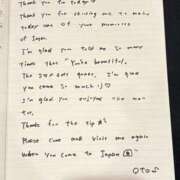 Thank you for today ♡
Thank you for choosing me to make
today one of your memories
of Japan.
I'm glad you told me so many
times that "You're beautiful."
The sweetest guest, I'm glad
you came so much!♡
I'm glad you enjoyed the mo
to.
Thanks for the tip
Please come and visit me again
When you come to Japan
OTO